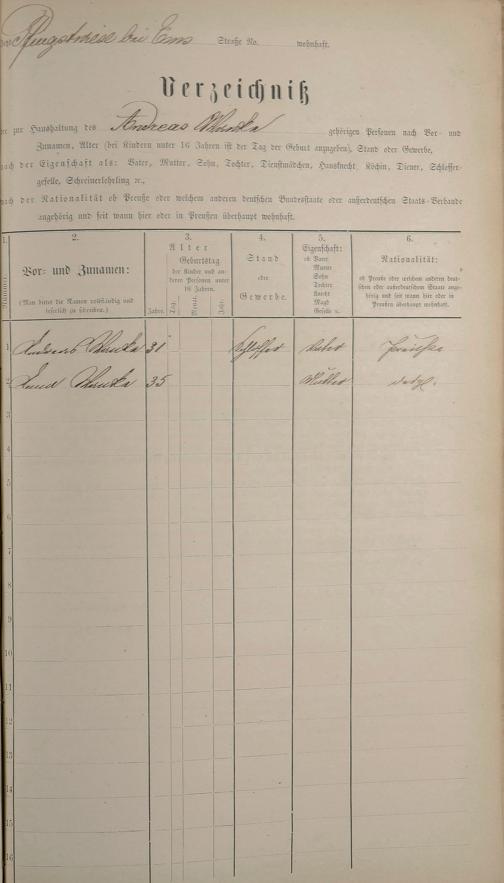 Pfingstwiese bei Ems Straße No. wohnhaft.
Verzeichniß
zur Haushaltung des Andreas gehörigen Personen nach Vor- und
Zunamen, Alter (bei Kindern unter 16 Jahren ist der Tag der Geburt anzugeben), Stand oder Gewerbe,
nach der Eigenschaft als: Vater, Mutter, Sohn, Tochter, Dienstmädchen, Hausknecht, Köchin, Diener, Schlosser-
geselle, Schreinerlehrling ꝛc.,
nach der Nationalität ob Preuße oder welchem anderen deutschen Bundesstaate oder außerdeutschen Staats-Verbande
angehörig und seit wann hier oder in Preußen überhaupt wohnhaft.
1.
Nummer.
2.
Vor- und Zunamen:
(Man bittet die Namen vollständig und
leserlich zu schreiben.)
3.
Alter
Jahre.
Geburtstag
der Kinder und an-
deren Personen unter
16 Jahren.
Tag.
Monat.
Jahr.
4.
Stand
oder
Gewerbe.
5.
Eigenschaft:
ob Vater
Mutter
Sohn
Tochter
Knecht
Magd
Geselle ꝛc.
6.
Nationalität:
ob Preuße oder welchem anderen deut-
schen oder außerdeutschen Staate ange-
hörig und seit wann hier oder in
Preußen überhaupt wohnhaft.
1 Andreas 31 Schlosser Vater Preuße
2 Anna 35 Mutter desgl.
3
4
5
6
7
8
9
10
11
12
13
14
15
16